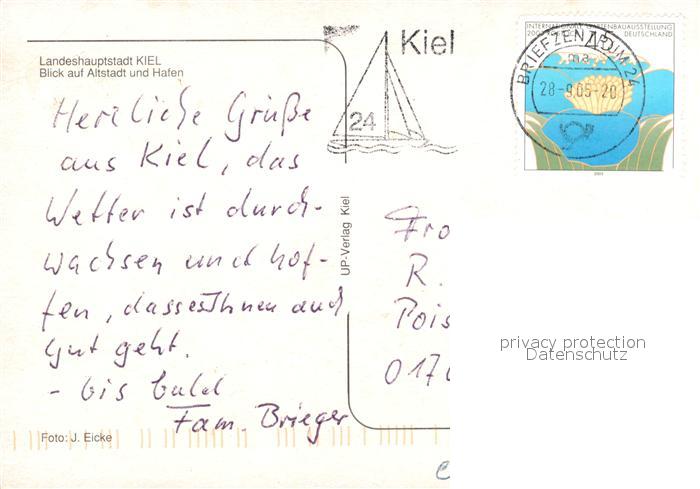 Landeshauptstadt KIEL
Blick auf Altstadt und Hafen
Herzliche Grüße
aus Kiel, das
Wetter ist durch-
wachsen und hof-
fen, dass es Ihnen auch
gut geht.
- bis bald
Fam. Brieger
Foto: J. Eicke
UP-Verlag Kiel
Kiel
24
BRIEFZENTRUM 24
28-9.05-20
INTERNATIONALE GARTENBAUAUSSTELLUNG
DEUTSCHLAND
2003
R.
privacy protection
Datenschutz